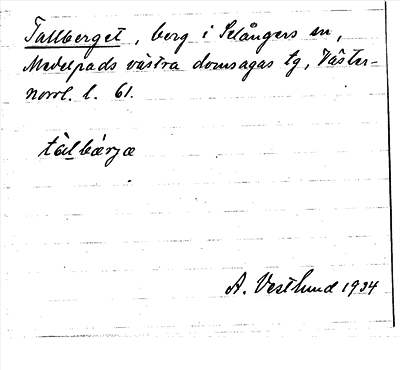 Tallberget, berg i Selångers sn,
Medelpads västra domsagas tg, Väster-
norrl. l. 61.
tàlbærjæ
A. Vestlund 1934